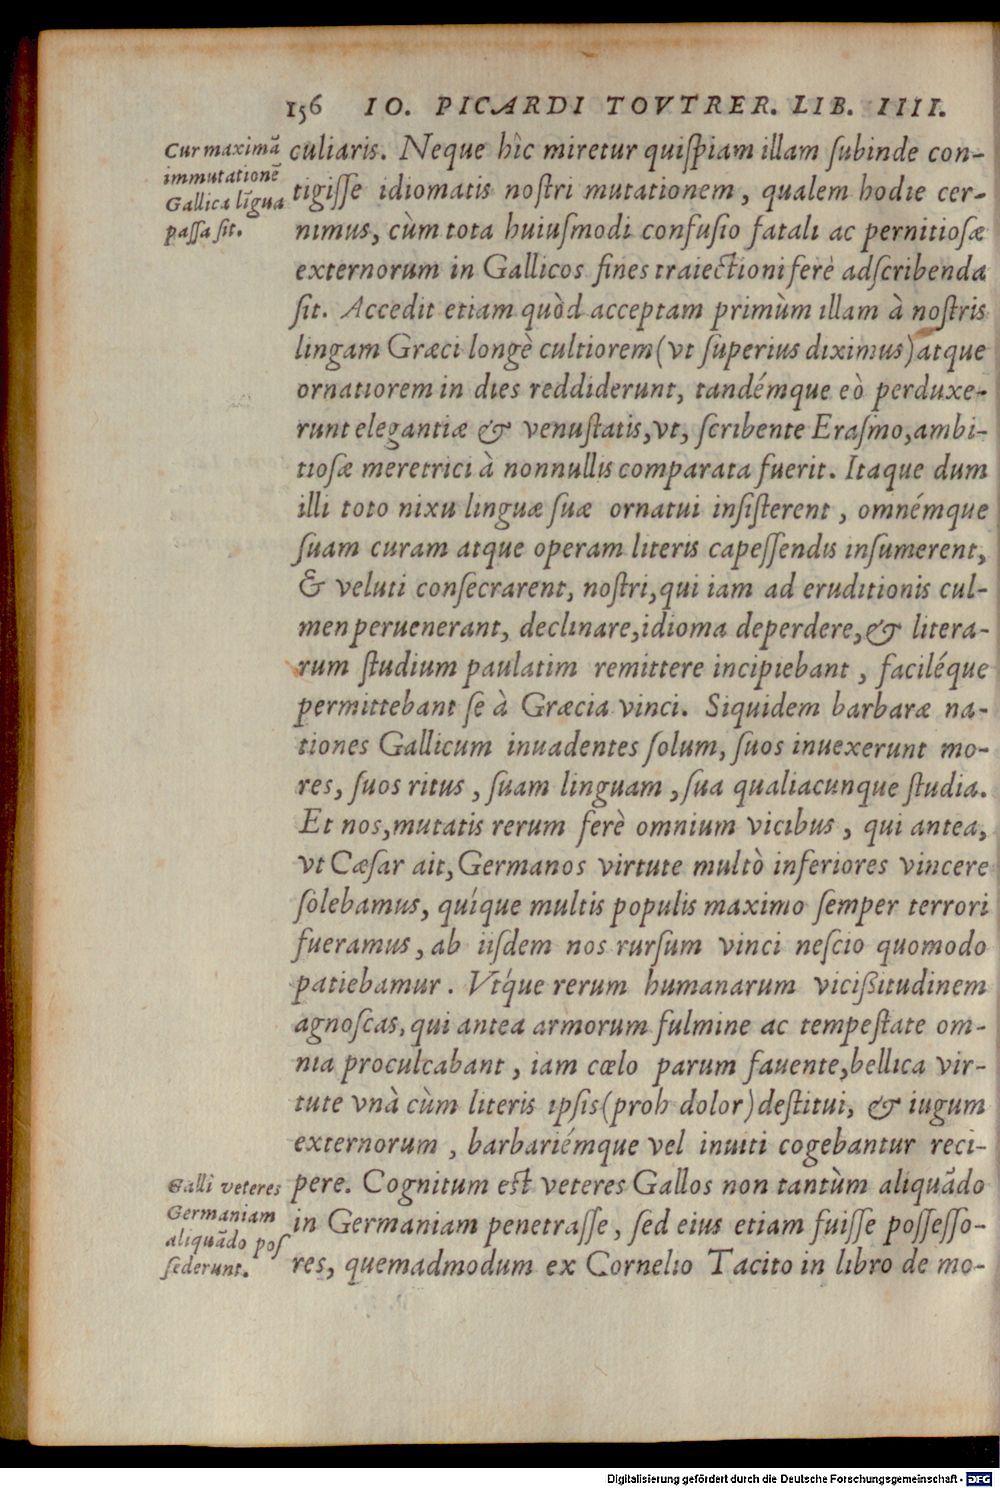 156 IO. PICARDI TOVTRER. LIB. IIII.
Cur maximā
immutationē
Gallica līgua
paſſa ſit.
culiaris. Neque hîc miretur quiſpiam illam ſubinde con-
tigiſſe idiomatis noſtri mutationem, qualem hodie cer-
nimus, cùm tota huiuſmodi confuſio fatali ac pernitioſæ
externorum in Gallicos fines traiectioni ferè adſcribenda
ſit. Accedit etiam quòd acceptam primùm illam à noſtris
lingam Græci longè cultiorem (vt ſuperius diximus) atque
ornatiorem in dies reddiderunt, tandémque eò perduxe-
runt elegantiæ & venuſtatis, vt, ſcribente Eraſmo, ambi-
tioſæ meretrici à nonnullis comparata fuerit. Itaque dum
illi toto nixu linguæ ſuæ ornatui inſiſterent, omnémque
ſuam curam atque operam literis capeſſendis inſumerent,
& veluti conſecrarent, noſtri, qui iam ad eruditionis cul-
men peruenerant, declinare, idioma deperdere, & litera-
rum ſtudium paulatim remittere incipiebant, faciléque
permittebant ſe à Græcia vinci. Siquidem barbaræ na-
tiones Gallicum inuadentes ſolum, ſuos inuexerunt mo-
res, ſuos ritus, ſuam linguam, ſua qualiacunque ſtudia.
Et nos, mutatis rerum ferè omnium vicibus, qui antea,
vt Cæſar ait, Germanos virtute multò inferiores vincere
ſolebamus, quíque multis populis maximo ſemper terrori
fueramus, ab iiſdem nos rurſum vinci neſcio quomodo
patiebamur. Vtque rerum humanarum vicißitudinem
agnoſcas, qui antea armorum fulmine ac tempeſtate om-
nia proculcabant, iam cœlo parum fauente, bellica vir-
tute vnà cùm literis ipſis (proh dolor) deſtitui, & iugum
externorum, barbariémque vel inuiti cogebantur reci-
pere. Cognitum eſt veteres Gallos non tantùm aliquādo
in Germaniam penetraſſe, ſed eius etiam fuiſſe poſſeſſo-
res, quemadmodum ex Cornelio Tacito in libro de mo-
Galli veteres
Germaniam
aliquādo poſ
ſederunt.
Digitalisierung gefördert durch die Deutsche Forschungsgemeinschaft - DFG